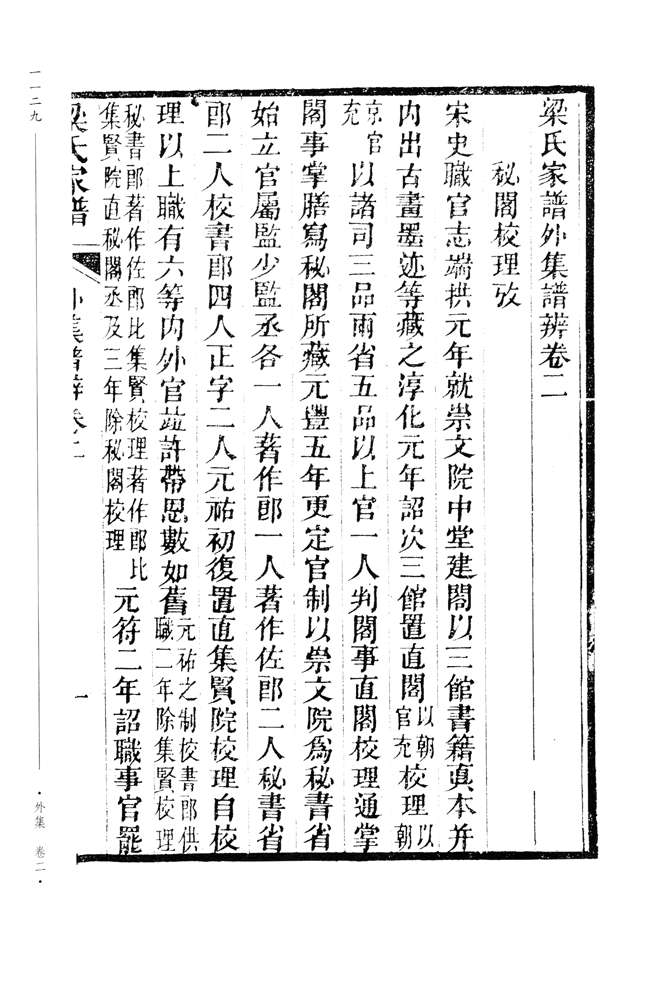 梁氏家譜外集譜辨卷二
秘閣校理攷
宋史職官志端拱元年就崇文院中堂建閣以三館書籍眞本并
内出古畫墨迹等藏之淳化元年詔次三館置直閣以朝官充校理以朝
京官充以諸司三品兩省五品以上官一人判閣事直閣校理通掌
閣事掌謄寫秘閣所藏元豐五年更定官制以崇文院爲秘書省
始立官屬監少監丞各一人著作郎一人著作佐郎二人秘書省
郎二人校書郎四人正字二人元祐初復置直集賢院校理自校
理以上職有六等内外官竝許帶恩數如舊元祐之制校書郎供職二年除集賢校理
秘書郎著作佐郎比集賢校理著作郎比集賢院直秘閣丞及三年除秘閣校理元符二年詔職事官罷
梁氏家譜 外集譜辨卷二 一
一一二九
·外集 卷二·